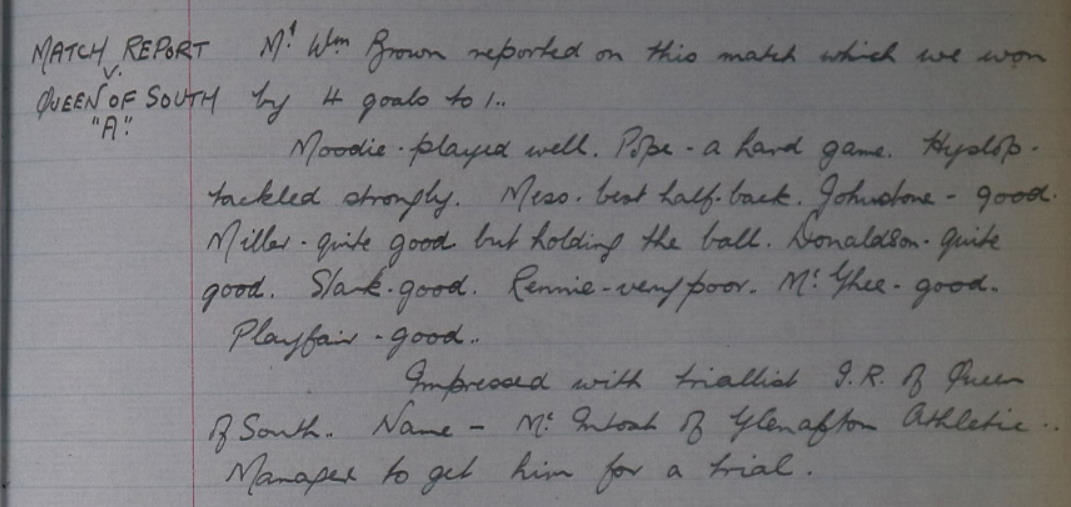 MATCH REPORT Mr Wm Brown reported on this match which we won
v.
QUEEN OF SOUTH by 4 goals to 1..
"A".
Moodie - played well. Pope - a hard game. Hyslop -
tackled strongly. Mess. best half-back. Johnstone - good.
Miller - quite good but holding the ball. Donaldson - quite
good. Slack - good. Rennie - very poor. Mc Ghee - good.
Playfair - good..
Impressed with triallist I.R. of Queen
of South.. Name - Mc Intosh of Glenafton Athletic..
Manager to get him for a trial.